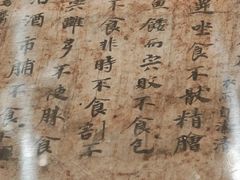 坐食不猒精膾
魚餧而宍敗不食色
不食非時不食割不
宍雖多不使勝食
沽酒市脯不食